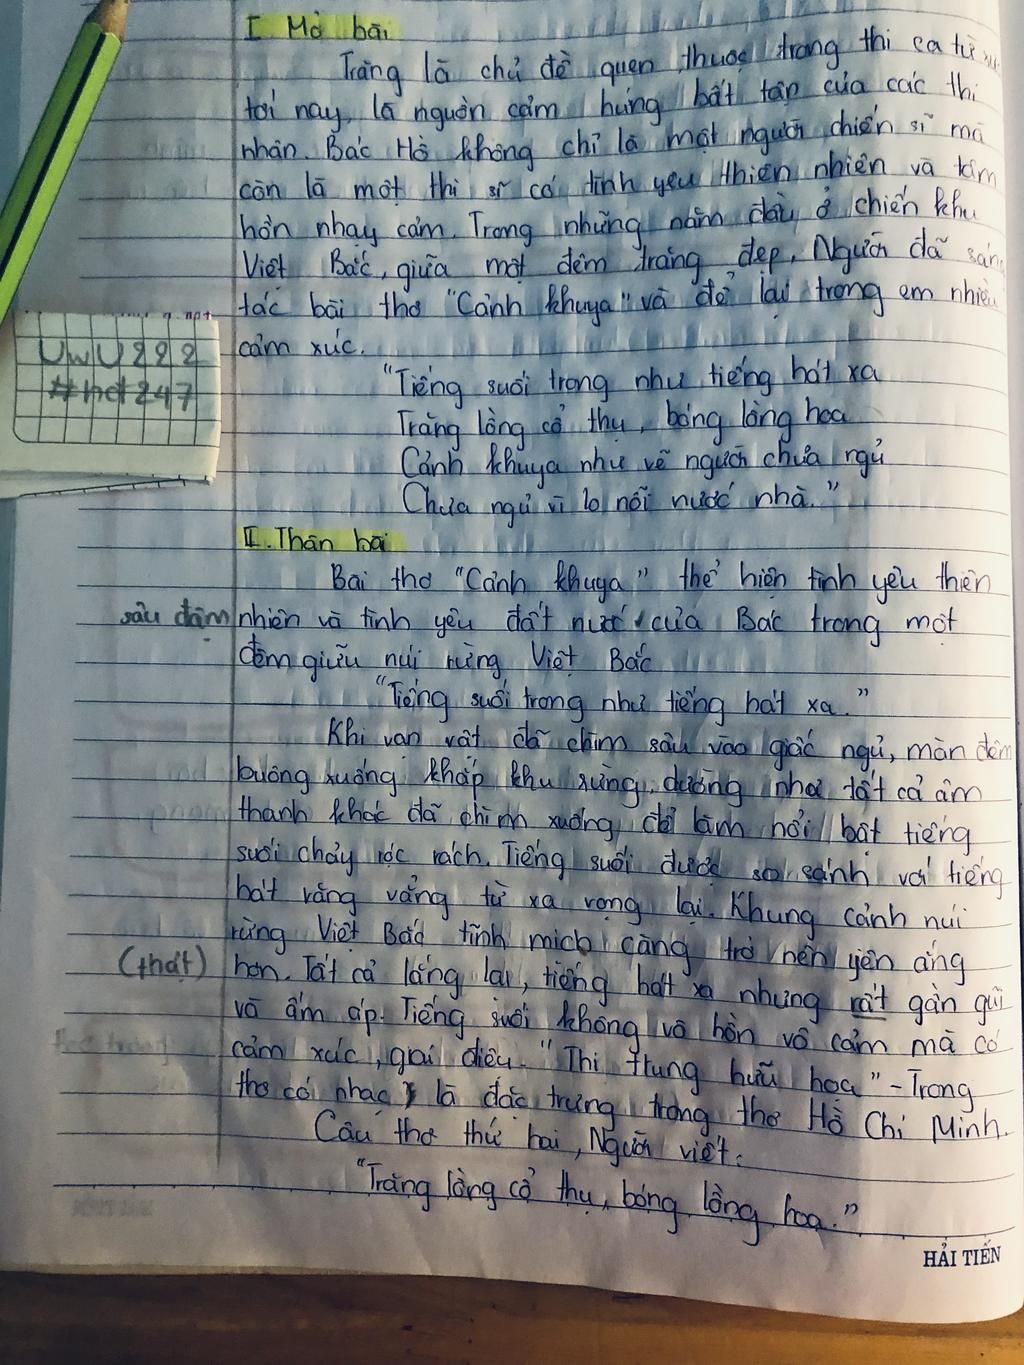 I. Mở bài
Trăng là chủ đề quen thuộc trong thi ca từ xưa
tới nay, là nguồn cảm hứng bất tận của các thi
nhân. Bác Hồ không chỉ là một người chiến sĩ mà
còn là một thi sĩ có tình yêu thiên nhiên và tâm
hồn nhạy cảm. Trong những năm đầu ở chiến khu
Việt Bắc, giữa một đêm trăng đẹp, Người đã sáng
tác bài thơ "Cảnh khuya" và để lại trong em nhiều
cảm xúc.
UwU222
#hdt247
"Tiếng suối trong như tiếng hát xa
Trăng lồng cổ thụ, bóng lồng hoa
Cảnh khuya như vẽ người chưa ngủ
Chưa ngủ vì lo nỗi nước nhà."
II. Thân bài
Bài thơ "Cảnh khuya" thể hiện tình yêu thiên
sâu đậm nhiên và tình yêu đất nước của Bác trong một
đêm giữa núi rừng Việt Bắc
"Tiếng suối trong như tiếng hát xa."
Khi vạn vật đã chìm sâu vào giấc ngủ, màn đêm
buông xuống khắp khu rừng, dường như tất cả âm
thanh khác đã chìm xuống để làm nổi bật tiếng
suối chảy róc rách. Tiếng suối được so sánh với tiếng
hát văng vẳng từ xa vọng lại. Khung cảnh núi
rừng Việt Bắc tĩnh mịch càng trở nên yên ắng
(thật) hơn. Tất cả lắng lại, tiếng hát xa nhưng rất gần gũi
và ấm áp. Tiếng suối không vô hồn vô cảm mà có
cảm xúc, giai điệu. "Thi trung hữu họa" - Trong
thơ có nhạc, là đặc trưng trong thơ Hồ Chí Minh.
Câu thơ thứ hai, Người viết:
"Trăng lồng cổ thụ, bóng lồng hoa."
HẢI TIẾN